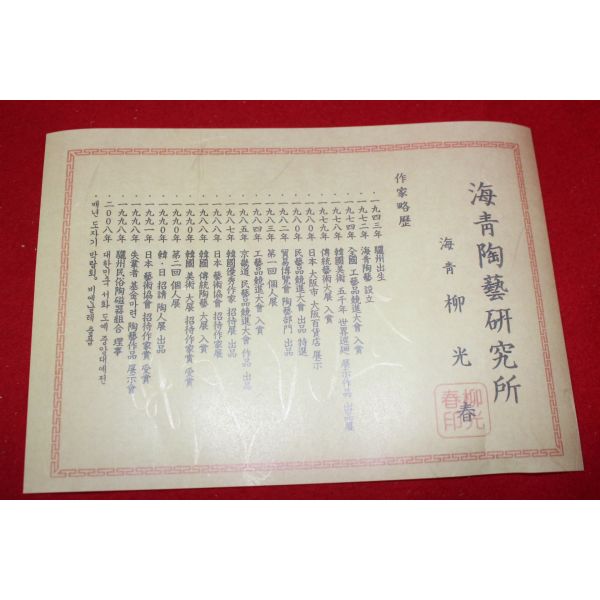 海青陶藝硏究所
海青 柳光春
柳光春印
作家略歷
· 一九四三年 驪州出生
· 一九七二年 海青陶藝 設立
· 一九七四年 全國 工藝品競進大會 入賞
· 一九七八年 韓國美術 五千年 世界巡廻 展示作品 出品展
· 一九七九年 傳統藝術大展 入賞
· 一九八〇年 日本 大阪市 大阪百貨店 展示
· 一九八〇年 民藝品競進大會 出品 特選
· 一九八二年 貿易博覽會 陶藝部門 出品
· 一九八三年 第一回 個人展
· 一九八四年 工藝品競進大會 入賞
· 一九八五年 京畿道 民藝品競進大會 作品 出品
· 一九八七年 韓國優秀作家 招待展 出品
· 一九八八年 日本 藝術協會 招待作家展
· 一九八八年 韓國 傳統陶藝 大展 入賞
· 一九九〇年 韓國 美術 大展 招待作家賞 受賞
· 一九九〇年 第二回 個人展
· 一九九〇年 韓·日 招請 陶人展 出品
· 一九九一年 日本 藝術協會 招待作家賞 受賞
· 一九九八年 失業者 基金마련 陶藝作品 展示會
· 一九九八年 驪州民俗陶磁器組合 理事
· 二〇〇八年 대한민국 서화 도예 중앙대예전
· 백년 도자기 박람회, 비엔날레 출품